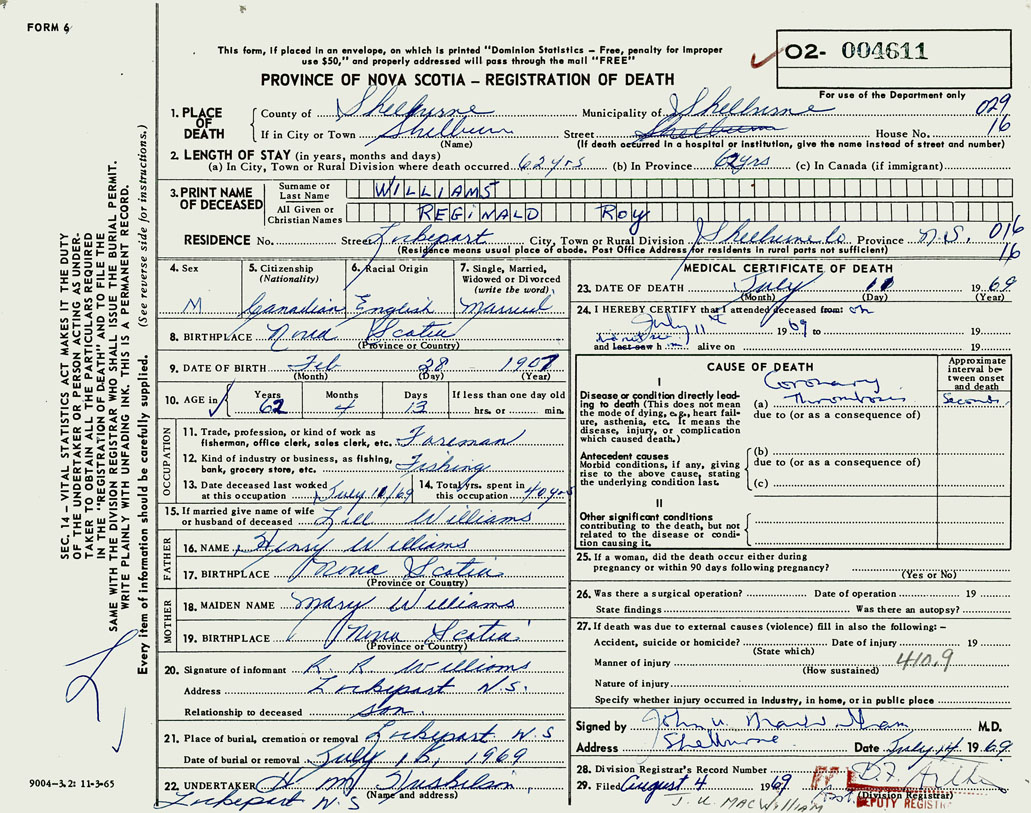 FORM 6
This form, if placed in an envelope, on which is printed "Dominion Statistics – Free, penalty for improper
use $50," and properly addressed will pass through the mail "FREE"
PROVINCE OF NOVA SCOTIA – REGISTRATION OF DEATH
O2- 004611
For use of the Department only
1. PLACE OF DEATH
County of Shelburne Municipality of Shelburne 029
If in City or Town Shelburn Street Shelburn House No. 16
(Name) (If death occurred in a hospital or institution, give the name instead of street and number)
2. LENGTH OF STAY (in years, months and days)
(a) In City, Town or Rural Division where death occurred 62 yrs (b) In Province 62 yrs (c) In Canada (if immigrant)
3. PRINT NAME OF DECEASED
Surname or Last Name WILLIAMS
All Given or Christian Names REGINALD ROY
RESIDENCE No. Street Lockeport City, Town or Rural Division Shelburne Co Province N.S. 016
(Residence means usual place of abode. Post Office Address for residents in rural parts not sufficient) 16
4. Sex M
5. Citizenship (Nationality) Canadian
6. Racial Origin English
7. Single, Married, Widowed or Divorced (write the word) Married
8. BIRTHPLACE Nova Scotia
(Province or Country)
9. DATE OF BIRTH Feb 28 1907
(Month) (Day) (Year)
10. AGE IN Years 62 Months 4 Days 13 If less than one day old hrs. or min.
OCCUPATION
11. Trade, profession, or kind of work as fisherman, office clerk, sales clerk, etc. Foreman
12. Kind of industry or business, as fishing, bank, grocery store, etc. Fishing
13. Date deceased last worked at this occupation July 11/69
14. Total yrs. spent in this occupation 40 yrs
15. If married give name of wife or husband of deceased Lill Williams
FATHER
16. NAME Henry Williams
17. BIRTHPLACE Nova Scotia
(Province or Country)
MOTHER
18. MAIDEN NAME Mary Williams
19. BIRTHPLACE Nova Scotia
(Province or Country)
20. Signature of informant R R Williams
Address Lockeport N.S.
Relationship to deceased son
21. Place of burial, cremation or removal Lockeport N S
Date of burial or removal July 13, 1969
22. UNDERTAKER H M
(Name and address)
Lockeport N.S
MEDICAL CERTIFICATE OF DEATH
23. DATE OF DEATH July 11 1969
(Month) (Day) (Year)
24. I HEREBY CERTIFY that I attended deceased from: on
July 11th 1969 to 19
and last saw h alive on 19
CAUSE OF DEATH
Approximate interval between onset and death
I
Disease or condition directly leading to death (This does not mean the mode of dying, e.g., heart failure, asthenia, etc. It means the disease, injury, or complication which caused death.)
(a) Coronary Thrombosis Seconds
due to (or as a consequence of)
Antecedent causes
Morbid conditions, if any, giving rise to the above cause, stating the underlying condition last.
(b)
due to (or as a consequence of)
(c)
II
Other significant conditions
contributing to the death, but not related to the disease or condition causing it.
25. If a woman, did the death occur either during pregnancy or within 90 days following pregnancy?
(Yes or No)
26. Was there a surgical operation? Date of operation 19
State findings Was there an autopsy?
27. If death was due to external causes (violence) fill in also the following: –
Accident, suicide or homicide? Date of injury 19
(State which)
Manner of injury 410.9
(How sustained)
Nature of injury
Specify whether injury occurred in industry, in home, or in public place
Signed by John U. M.D.
Address Shelburne Date July 14 1969
28. Division Registrar's Record Number
29. Filed August 4 1969
(Division Registrar)
DEPUTY REGISTRAR
J. U. MACWILLIAM
SEC. 14 – VITAL STATISTICS ACT MAKES IT THE DUTY
OF THE UNDERTAKER OR PERSON ACTING AS UNDER-
TAKER TO OBTAIN ALL THE PARTICULARS REQUIRED
IN THE "REGISTRATION OF DEATH" AND TO FILE THE
SAME WITH THE DIVISION REGISTRAR WHO SHALL ISSUE THE BURIAL PERMIT.
WRITE PLAINLY WITH UNFADING INK. THIS IS A PERMANENT RECORD.
Every item of information should be carefully supplied. (See reverse side for instructions.)
9004–3.2: 11-3-65